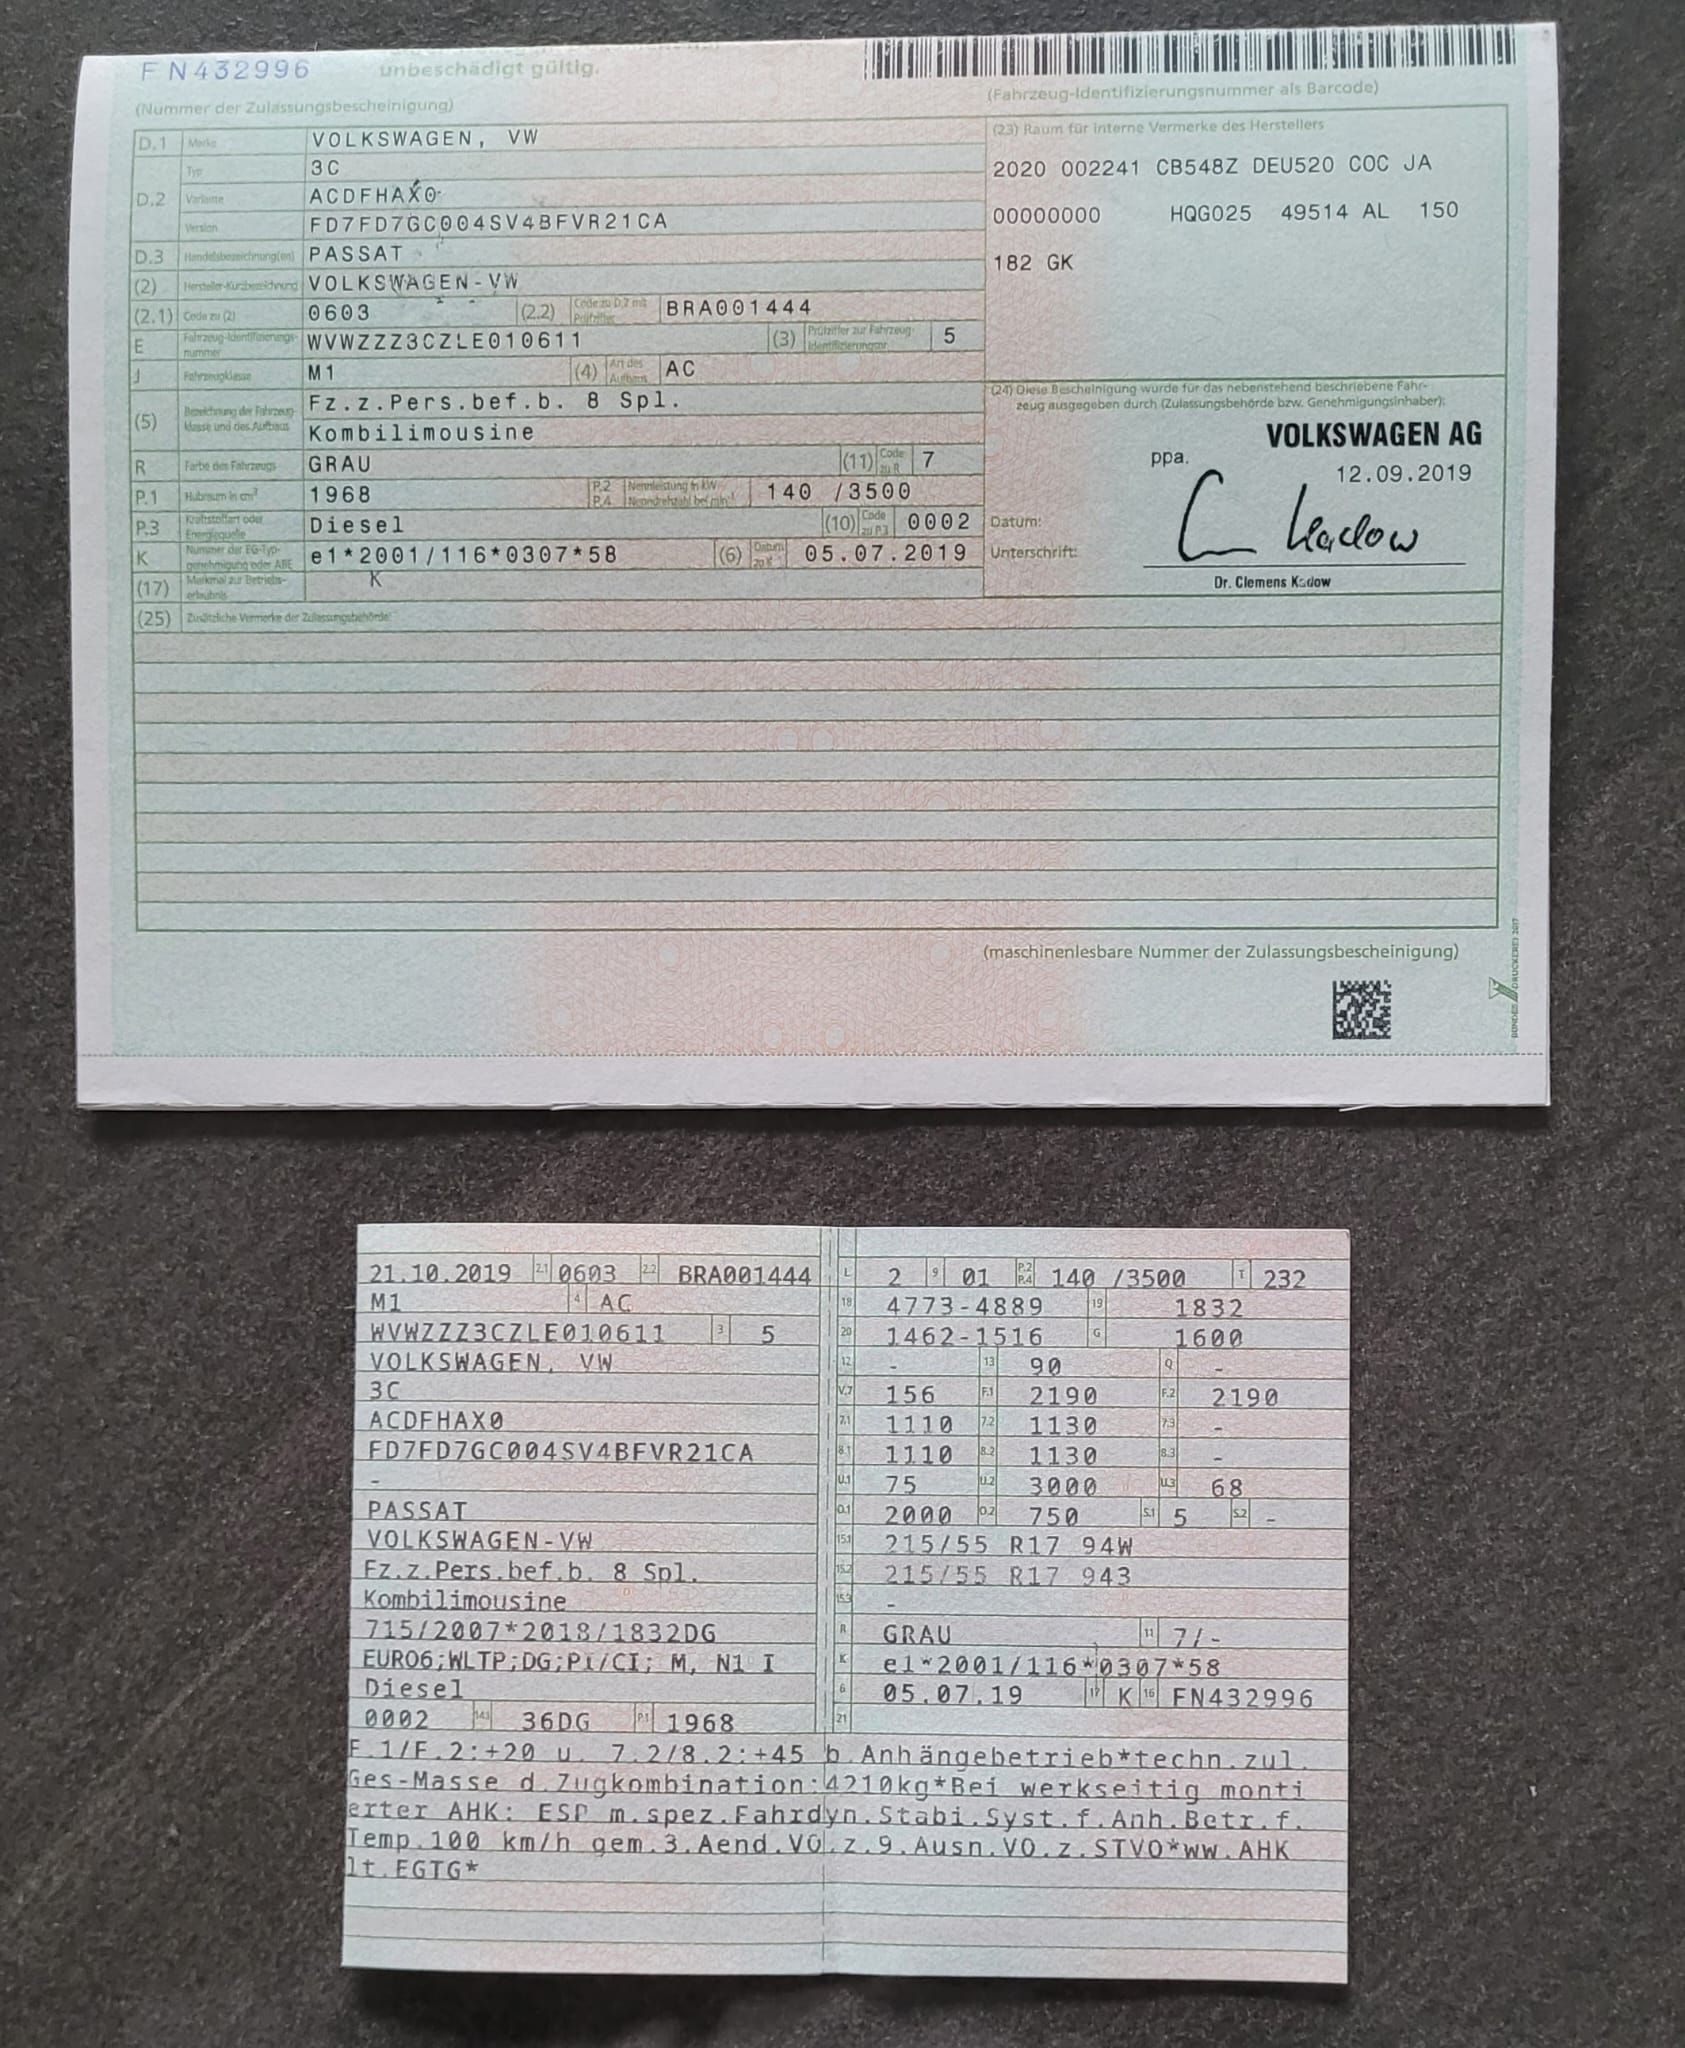 FN432996 unbeschädigt gültig.
(Nummer der Zulassungsbescheinigung) (Fahrzeug-Identifizierungsnummer als Barcode)
D.1 Marke VOLKSWAGEN, VW
Typ 3C
D.2 Variante ACDFHAX0
Version FD7FD7GC004SV4BFVR21CA
D.3 Handelsbezeichnung(en) PASSAT
(2) Hersteller-Kurzbezeichnung VOLKSWAGEN-VW
(2.1) Code zu (2) 0603 (2.2) Code zu D.2 mit Prüfziffer BRA001444
E Fahrzeug-Identifizierungs-nummer WVWZZZ3CZLE010611 (3) Prüfziffer zur Fahrzeug-Identifizierungsnr. 5
J Fahrzeugklasse M1 (4) Art des Aufbaus AC
(5) Bezeichnung der Fahrzeug-klasse und des Aufbaus Fz.z.Pers.bef.b. 8 Spl.
Kombilimousine
R Farbe des Fahrzeugs GRAU (11) Code zu R 7
P.1 Hubraum in cm³ 1968 P.2 P.4 Nennleistung in kW Nenndrehzahl bei min⁻¹ 140 /3500
P.3 Kraftstoffart oder Energiequelle Diesel (10) Code zu P.3 0002
K Nummer der EG-Typ-genehmigung oder ABE e1*2001/116*0307*58 (6) Datum zu K 05.07.2019
(17) Merkmal zur Betriebs-erlaubnis K
(25) Zusätzliche Vermerke der Zulassungsbehörde:
(23) Raum für interne Vermerke des Herstellers
2020 002241 CB548Z DEU520 COC JA
00000000 HQG025 49514 AL 150
182 GK
(24) Diese Bescheinigung wurde für das nebenstehend beschriebene Fahr-
zeug ausgegeben durch (Zulassungsbehörde bzw. Genehmigungsinhaber):
VOLKSWAGEN AG
ppa.
12.09.2019
Datum:
Unterschrift: C Kadow
Dr. Clemens Kadow
(maschinenlesbare Nummer der Zulassungsbescheinigung)
BUNDESDRUCKEREI 2017
21.10.2019 2.1 0603 2.2 BRA001444
M1 4 AC
WVWZZZ3CZLE010611 3 5
VOLKSWAGEN, VW
3C
ACDFHAX0
FD7FD7GC004SV4BFVR21CA
-
PASSAT
VOLKSWAGEN-VW
Fz.z.Pers.bef.b. 8 Spl.
Kombilimousine
715/2007*2018/1832DG
EURO6;WLTP;DG;PI/CI; M, N1 I
Diesel
0002 14.1 36DG P.1 1968
L 2 9 01 P.2 P.4 140 /3500 T 232
18 4773-4889 19 1832
20 1462-1516 G 1600
12 - 13 90 Q -
V.7 156 F.1 2190 F.2 2190
7.1 1110 7.2 1130 7.3 -
8.1 1110 8.2 1130 8.3 -
U.1 75 U.2 3000 U.3 68
O.1 2000 O.2 750 S.1 5 S.2 -
15.1 215/55 R17 94W
15.2 215/55 R17 943
15.3 -
R GRAU 11 7/-
K e1*2001/116*0307*58
6 05.07.19 17 K 16 FN432996
21
F.1/F.2:+20 u. 7.2/8.2:+45 b.Anhängebetrieb*techn.zul.
Ges-Masse d.Zugkombination:4210kg*Bei werkseitig monti
erter AHK: ESP m.spez.Fahrdyn.Stabi.Syst.f.Anh.Betr.f.
Temp.100 km/h gem.3.Aend.VO.z.9.Ausn.VO.z.STVO*ww.AHK
lt.EGTG*